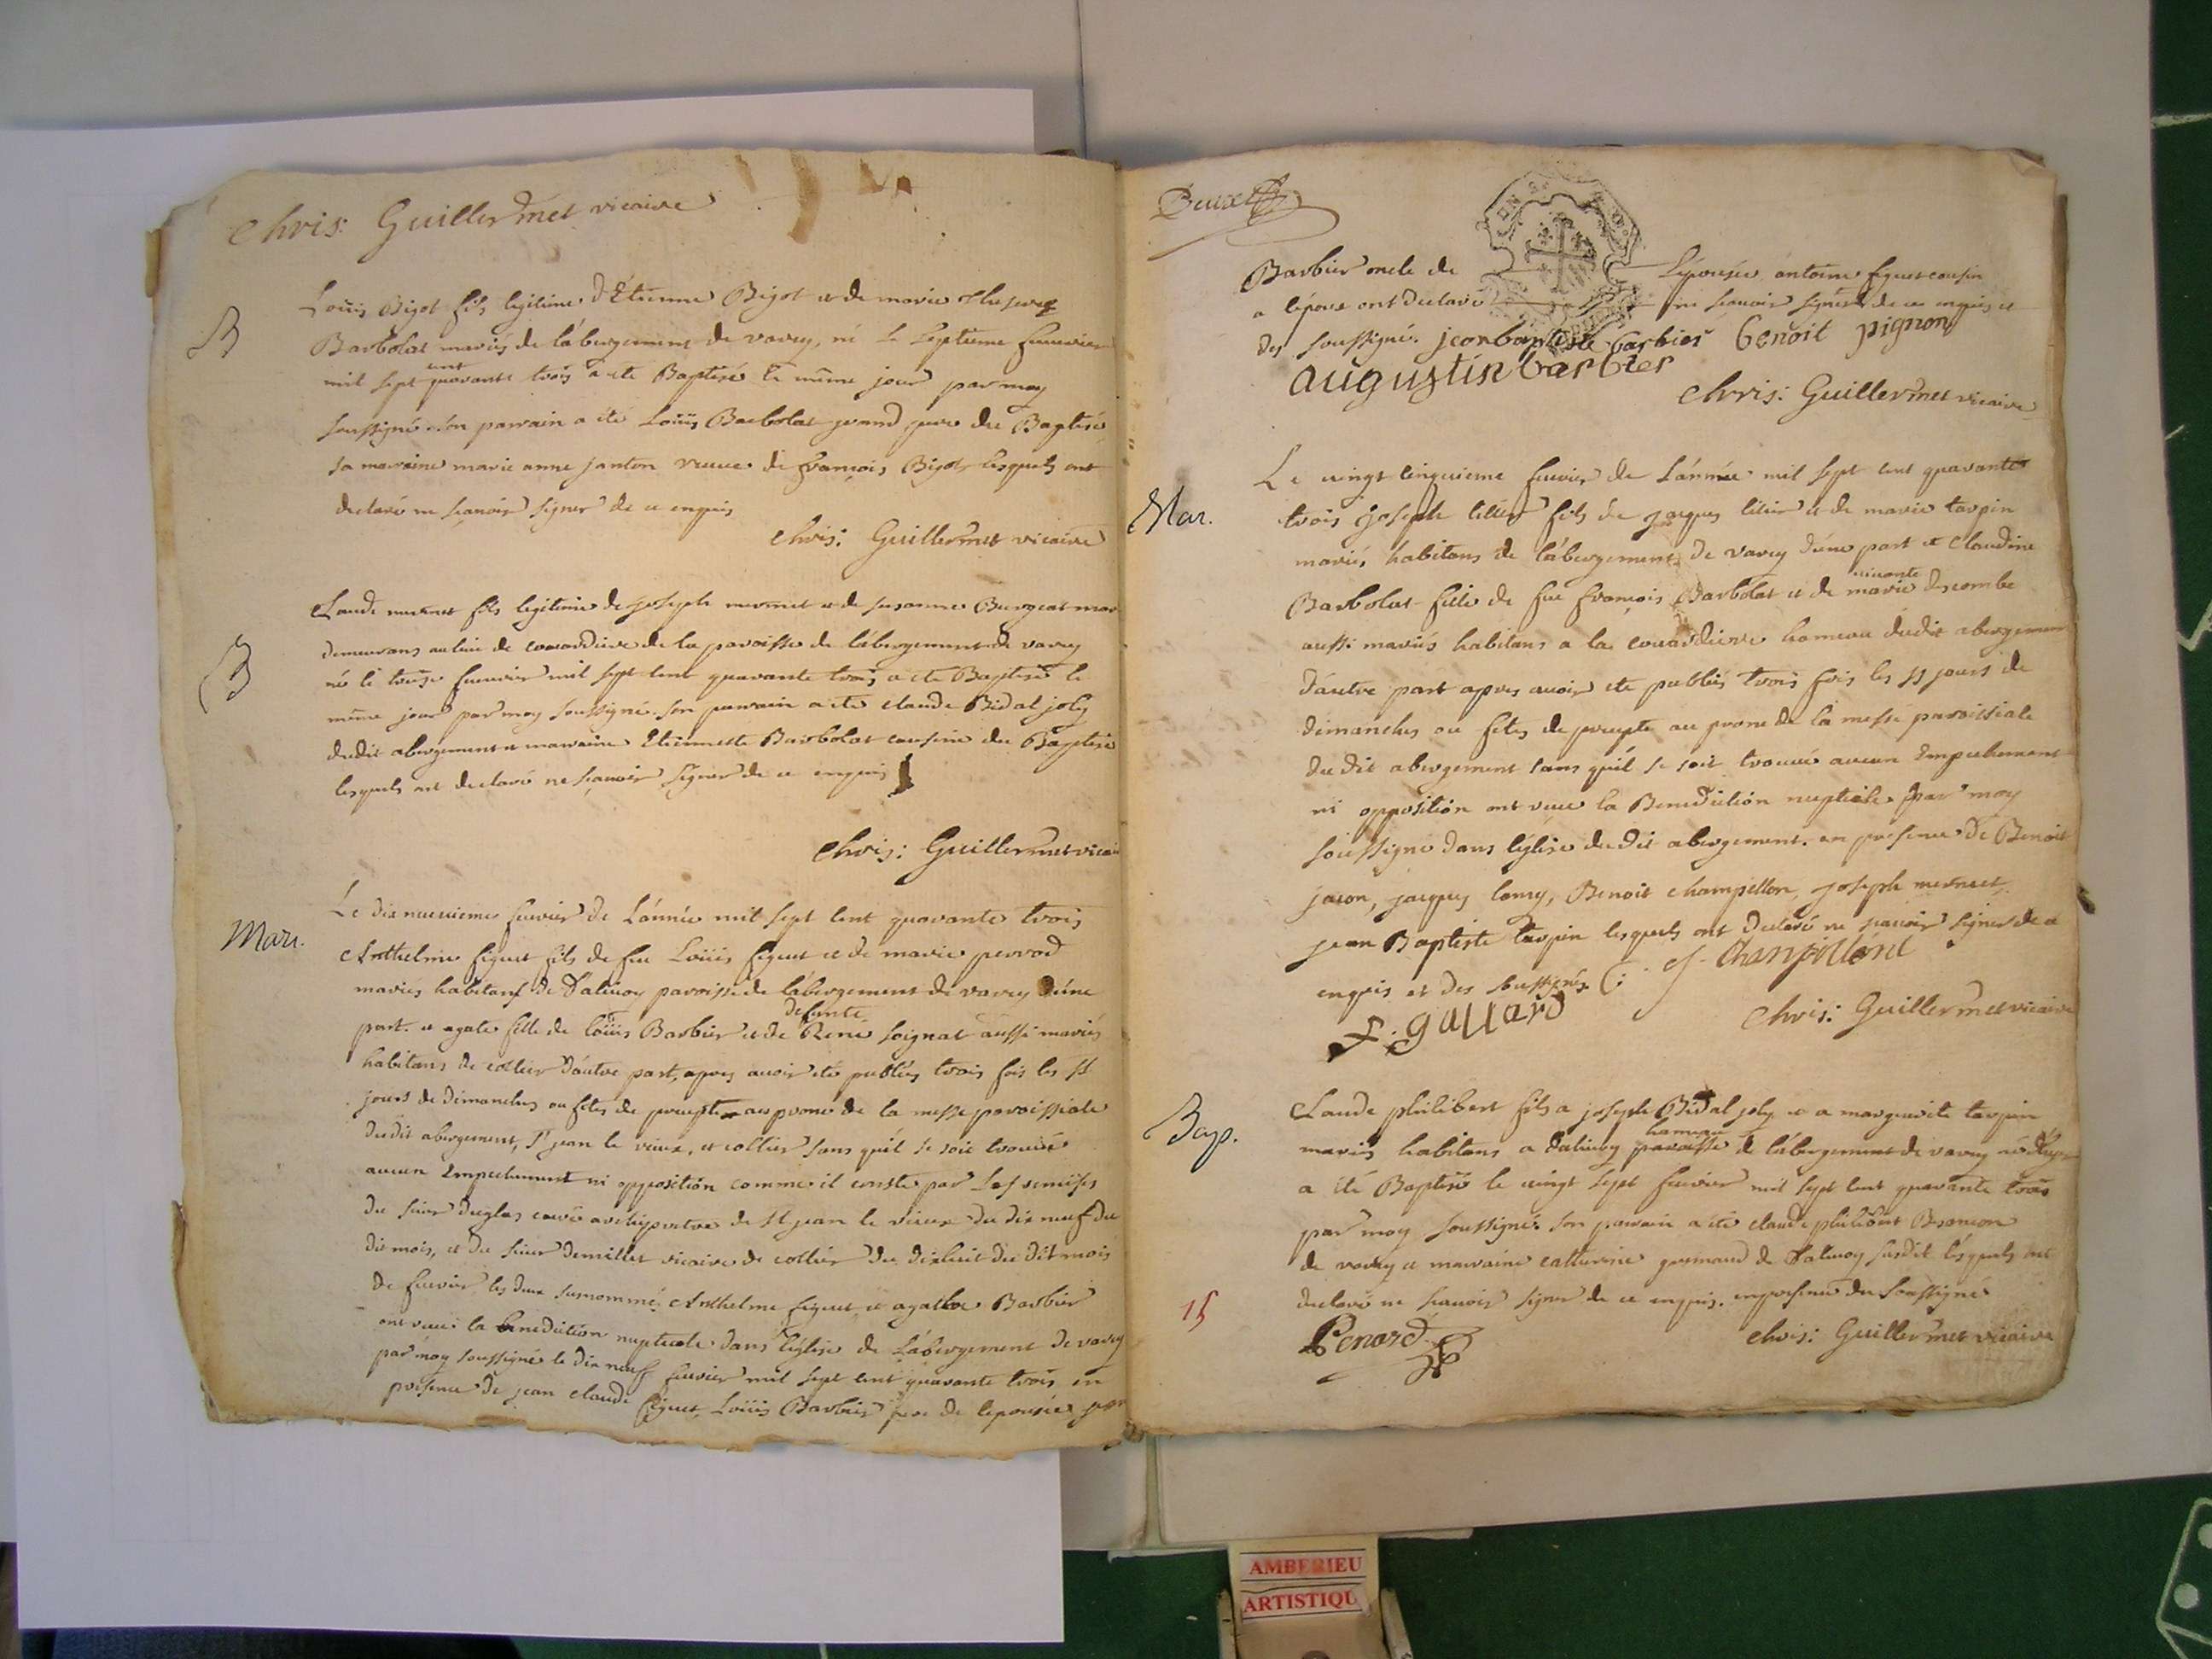 Chris: Guillermet vicaire
B
Louis Bigot fils legitime d'Etienne Bigot et de marie
Barbolat mariés de l'abergement de varey, né le septieme feuvrier
mil sept cent quarante trois a ete Baptisé le même jour par moy
soussigné. son parrain a été Loüis Barbolat grand pere du Baptisé
sa marraine marie anne janton veuve de françois Bigot lesquels ont
declaré ne sçavoir signer de ce enquis
chris: Guillermet vicaire
B
Claude mermet fils legitime de joseph mermet et de susanne Burgeat mar
demeurans au lieu de couardiere de la paroisse de l'abergement de varey
né le treize feuvrier mil sept cent quarante trois a ete Baptisé le
même jour par moy soussigné. son parrain a été claude Bidal joly
dudit abergement et marraine Etiennette Barbolat cousine du Baptisé
lesquels ont declaré ne sçavoir signer de ce enquis
Chris: Guillermet vicai
Mari.
Le dix neuvieme feuvrier de L'année mil sept cent quarante trois
Anthelme figuet fils de feu Loüis figuet et de marie perrod
mariés habitans de Dalivoy paroisse de l'abergement de varey d'une
part. et agate fille de loüis Barbier et de defunte René soignat aussi mariés
habitans de collier d'autre part, apres avoir été publiés trois fois les ss
jours de dimanches ou fetes de precepte au prone de la messe paroissiale
dudit abergement, St jean le vieux, et collier sans qu'il se soit trouvé
aucun Empechement ni opposition comme il conste par les remises
du sieur duglas curé archipretre de St jean le vieux du dix neuf du
dit mois, et du sieur demillet vicaire de collier du dixhuit du dit mois
de feuvrier les deux surnommés Anthelme figuet et agathe Barbier
ont reçu la benediction nuptiale dans l'église de L'abergement de varey
par moy soussigné le dix neuf feuvrier mil sept cent quarante trois en
presence de jean claude figuet, Loüis Barbier pere de l'epousée jean
Deux
Barbier oncle de L'épousée antoine figuet cousin
a l'époux ont declaré ne sçavoir signer de ce enquis et
des soussignés. jean baptiste barbier benoit pignon
augustin barbier
Chris: Guillermet vicaire
Mar.
Le vingt cinquieme feuvrier de L'année mil sept cent quarante
trois joseph litier fils de jacques litier et de marie tarpin
mariés habitans de l'abergement de varey d'une part et Claudine
Barbolat fille de feu françois Barbolat et de vivante marie descombe
aussi mariés habitans a la couardiere hameau dudit abergement
d'autre part apres avoir ete publiés trois fois les ss jours de
dimanches ou fetes de precepte au prone de la messe paroissiale
du dit abergement sans qu'il se soit trouvé aucun Empechement
ni opposition ont recu la Benediction nuptiale par moy
soussigné dans l'église du dit abergement. en presence de Benoit
jacon, jacques Benoit Champillon, joseph mermet,
jean Baptiste tarpin lesquels ont declaré ne sçavoir signer de ce
enquis et des soussignés. Champillond
F. gallard
Chris: Guillermet vicaire
Bap.
Claude philibert fils a joseph Bidal joly et a marguerite tarpin
mariés habitans a dalivoy hameau paroisse de l'abergement de varey
a été Baptisé le vingt sept feuvrier mil sept cent quarante trois
par moy soussigné. son parrain a été claude philibert
de varey et marraine catherine de Dalivoy susdit lesquels ont
declaré ne sçavoir signer de ce enquis. en presence du soussigné
15
Penard
chris: Guillermet vicaire
AMBERIEU
ARTISTIQU